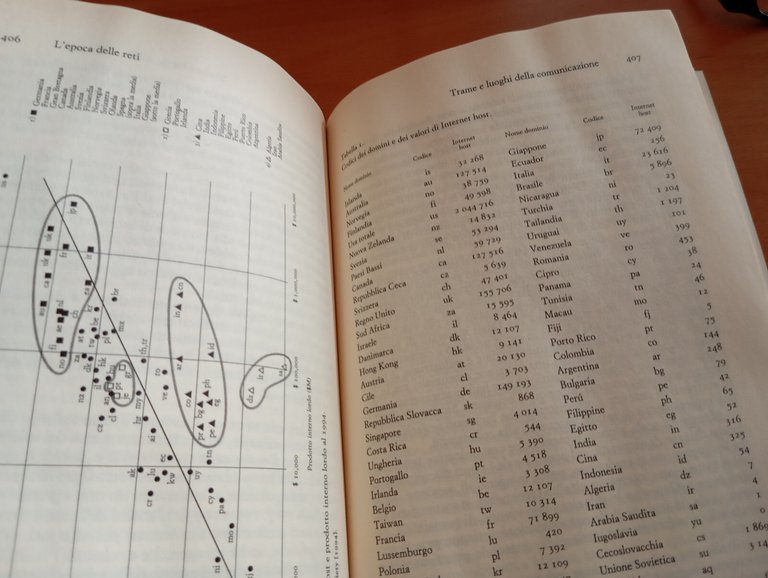 406
L'epoca delle reti
1) ■ Germania
Francia
Gran Bretagna
Canada
Australia
Svezia
Finlandia
Norvegia
Svizzera
Olanda
Spagna
(sopra la media)
Italia
Giappone
(sotto la media)
2) □ Grecia
Portogallo
Irlanda
3) ▲ Cina
India
Indonesia
Filippine
Egitto
Perú
Porto Rico
Colombia
Argentina
4) △ Algeria
Iran
Arabia Saudita
us
jp
uk
fr
it
ca
au
nl
se
ch
es
fi
no
br
be
kr
tw
pl
mx
at
za
dk
hk
il
gr
pt
ie
nz
cl
cz
th, tr
to
ve
hr
ai
ec
ak
lu
kw
cr
uy
tn
cy
pa
mo
ni
fj
in
co
ar
id
co
ph
bg
eg
pr
pe
dz
ir
sa
$ 10,000
$ 100,000
$ 1,000,000
$ 10,000,000
Prodotto interno lordo ($M)
ost e prodotto interno lordo al 1994.
iety (1994).
Trame e luoghi della comunicazione
407
Tabella 1.
Codici dei domini e dei valori di Internet host.
Nome dominio Codice Internet host Nome dominio Codice Internet host
Islanda is 32 268 Giappone jp 72 409
Australia au 127 514 Ecuador ec 256
Norvegia no 38 759 Italia it 23 616
Finlandia fi 49 598 Brasile br 5 896
Usa totale us 2 044 716 Nicaragua ni 23
Nuova Zelanda nz 14 832 Turchia tr 1 204
Svezia se 53 294 Tailandia th 1 197
Paesi Bassi nl 59 729 Uruguai uy 101
Canada ca 127 516 Venezuela ve 399
Repubblica Ceca cz 5 639 Romania ro 453
Svizzera ch 47 401 Cipro cy 38
Regno Unito uk 155 706 Panama pa 24
Sud Africa za 15 595 Tunisia tn 46
Israele il 8 464 Macau mo 12
Danimarca dk 12 107 Fiji fj 5
Hong Kong hk 9 141 Porto Rico pr 75
Austria at 20 130 Colombia co 144
Cile cl 3 703 Argentina ar 248
Germania de 149 193 Bulgaria bg 79
Repubblica Slovacca sk 868 Perú pe 42
Singapore sg 4 014 Filippine ph 65
Costa Rica cr 544 Egitto eg 52
Ungheria hu 5 390 India in 316
Portogallo pt 4 518 Cina cn 325
Irlanda ie 3 308 Indonesia id 54
Belgio be 12 107 Algeria dz 7
Taiwan tw 10 314 Iran ir 4
Francia fr 71 899 Arabia Saudita sa 1
Lussemburgo lu 420 Iugoslavia yu 0
Polonia pl 7 392 Cecoslovacchia cs 1 869
kr 12 109 Unione Sovietica su 3 14
aq